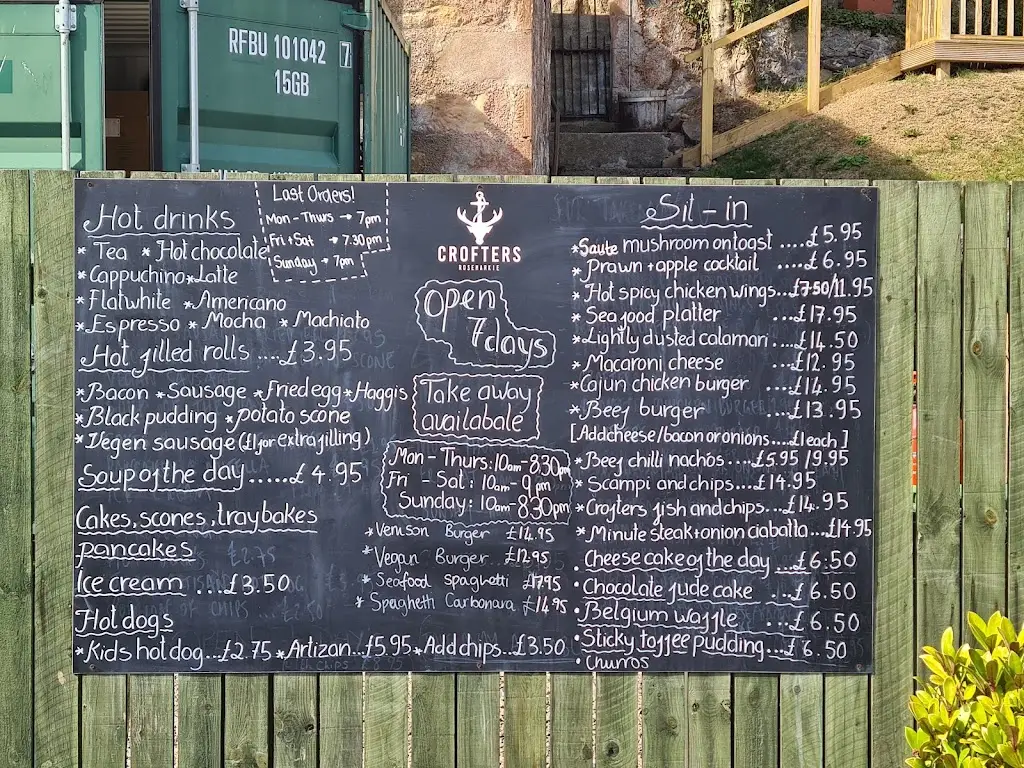 RFBU 101042 7
15GB
Hot drinks
* Tea * Hot chocolate
* Cappuchino * Latte
* Flatwhite * Americano
* Espresso * Mocha * Machiato
Hot filled rolls ....£3.95
* Bacon * Sausage * Fried egg * Haggis
* Black pudding * potato scone
* Vegen sausage (£1 for extra filling)
Soup of the day .....£4.95
Cakes, scones, traybakes
pancakes
Ice cream ...£3.50
Hot dogs
* Kids hot dog...£2.75 * Artizan...£5.95 * Add chips...£3.50
Last Orders!
Mon - Thurs → 7pm
Fri + Sat → 7.30pm
Sunday → 7pm
CROFTERS
ROSEMARKIE
Open
7 days
Take away
availabale
Mon - Thurs: 10am - 830pm
Fri - Sat: 10am - 9pm
Sunday: 10am - 8:30pm
* Venison Burger £14.95
* Vegan Burger £12.95
* Seafood spaghetti £17.95
* Spaghetti Carbonara £14.95
Sit - in
* Saute mushroom on toast ....£5.95
* Prawn + apple cocktail ....£6.95
* Hot spicy chicken wings...£7.50/11.95
* Seafood platter ...£17.95
* Lightly dusted calamari...£14.50
* Macaroni cheese ...£12.95
* Cajun chicken burger ...£14.95
* Beef burger ...£13.95
[Add cheese/bacon or onions....£1 each]
* Beef chilli nachos....£5.95 /9.95
* Scampi and chips...£14.95
* Crofters fish and chips...£14.95
* Minute steak + onion ciabatta...£14.95
• Cheese cake of the day ...£6.50
• Chocolate fude cake ...£6.50
• Belgium waffle ...£6.50
• Sticky toffee pudding...£6.50
• Churros